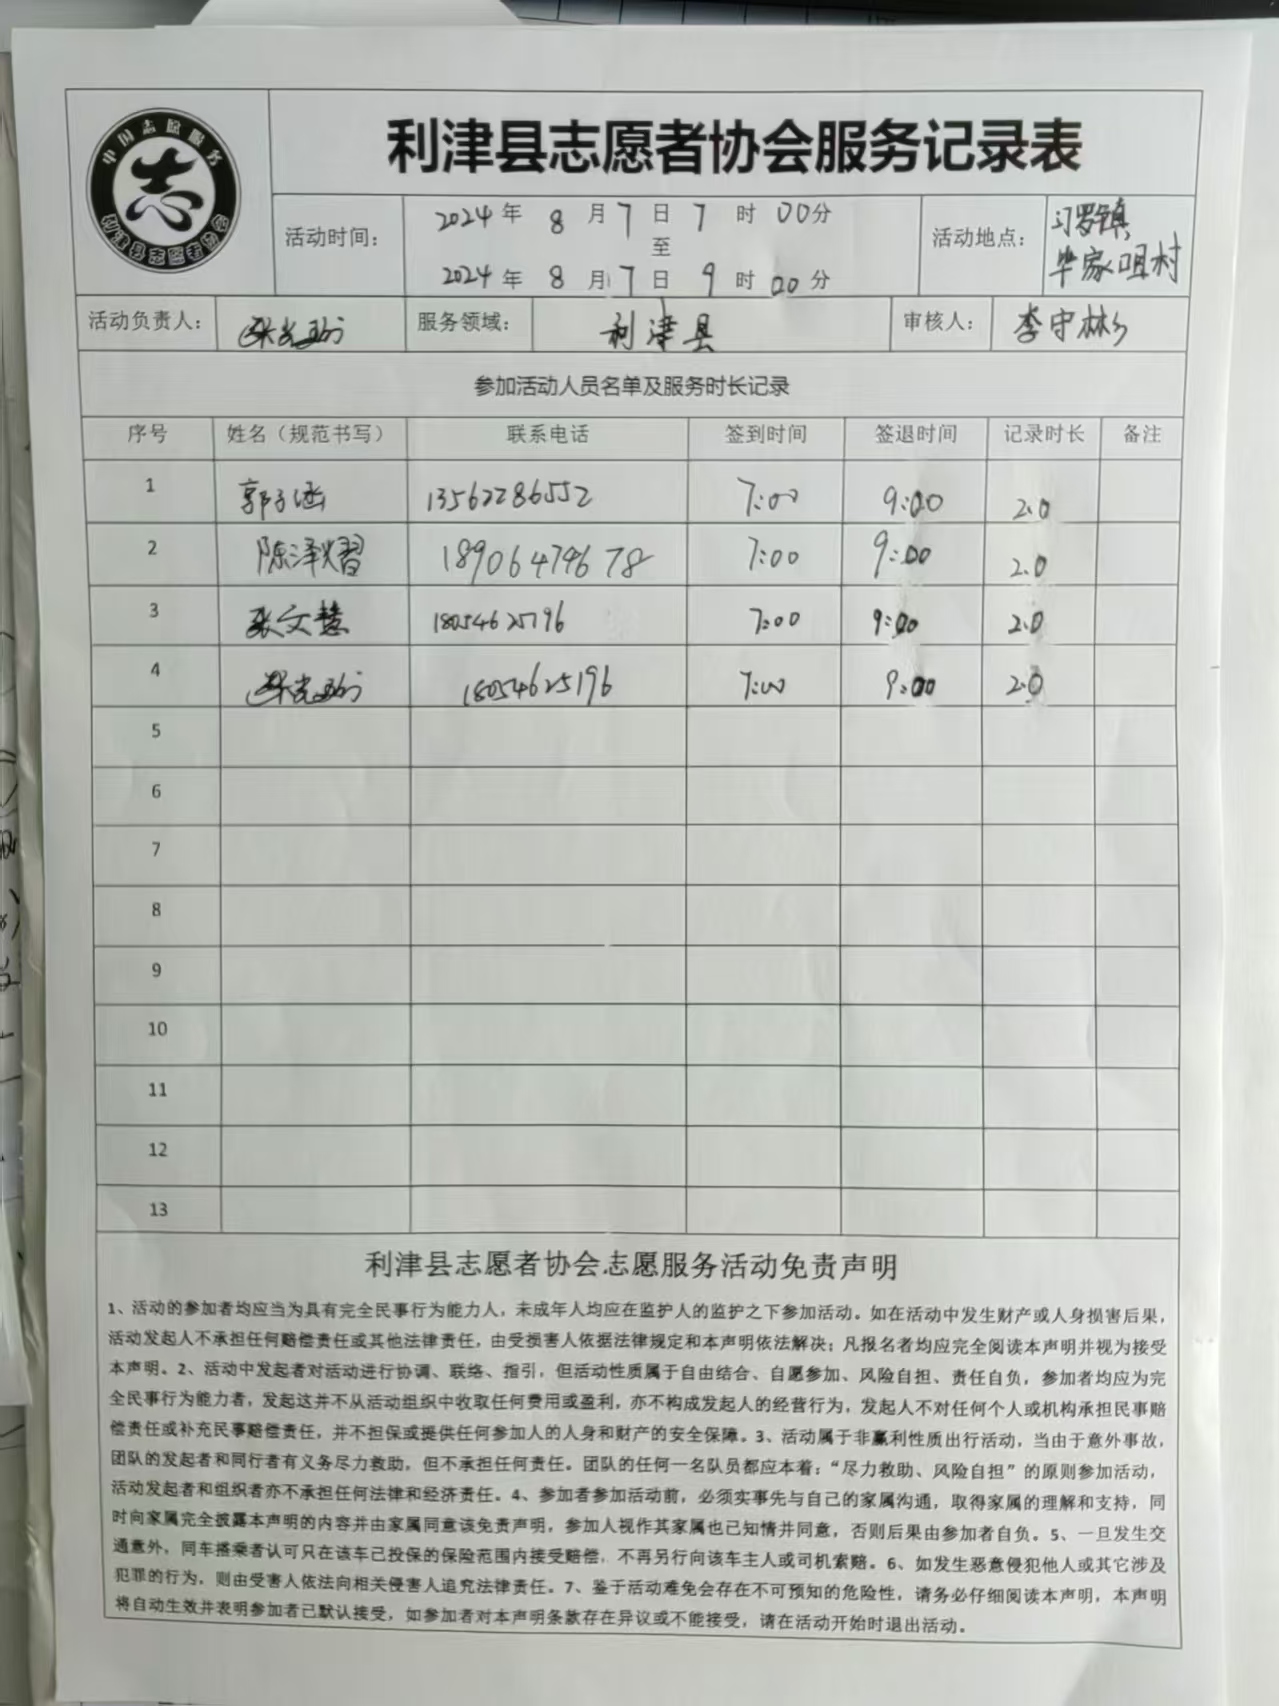 中国志愿服务
志
利津县志愿者协会
利津县志愿者协会服务记录表
活动时间：
2024年 8 月 7 日 7 时 00分
至
2024年 8 月 7 日 9 时 00分
活动地点：
刁罗镇
毕家咀村
活动负责人：
服务领域： 利津县
审核人： 李守彬
参加活动人员名单及服务时长记录
序号 姓名（规范书写） 联系电话 签到时间 签退时间 记录时长 备注
1 郭子涵 13562286552 7:00 9:00 2.0
2 陈泽熠 18906474678 7:00 9:00 2.0
3 张文慧 18054625196 7:00 9:00 2.0
4 18054625196 7:00 9:00 2.0
5
6
7
8
9
10
11
12
13
利津县志愿者协会志愿服务活动免责声明
1、活动的参加者均应当为具有完全民事行为能力人，未成年人均应在监护人的监护之下参加活动。如在活动中发生财产或人身损害后果，
活动发起人不承担任何赔偿责任或其他法律责任，由受损害人依据法律规定和本声明依法解决；凡报名者均应完全阅读本声明并视为接受
本声明。2、活动中发起者对活动进行协调、联络、指引，但活动性质属于自由结合、自愿参加、风险自担、责任自负，参加者均应为完
全民事行为能力者，发起这并不从活动组织中收取任何费用或盈利，亦不构成发起人的经营行为，发起人不对任何个人或机构承担民事赔
偿责任或补充民事赔偿责任，并不担保或提供任何参加人的人身和财产的安全保障。3、活动属于非赢利性质出行活动，当由于意外事故，
团队的发起者和同行者有义务尽力救助，但不承担任何责任。团队的任何一名队员都应本着：“尽力救助、风险自担”的原则参加活动，
活动发起者和组织者亦不承担任何法律和经济责任。4、参加者参加活动前，必须实事先与自己的家属沟通，取得家属的理解和支持，同
时向家属完全披露本声明的内容并由家属同意该免责声明，参加人视作其家属也已知情并同意，否则后果由参加者自负。5、一旦发生交
通意外，同车搭乘者认可只在该车已投保的保险范围内接受赔偿，不再另行向该车主人或司机索赔。6、如发生恶意侵犯他人或其它涉及
犯罪的行为，则由受害人依法向相关侵害人追究法律责任。7、鉴于活动难免会存在不可预知的危险性，请务必仔细阅读本声明，本声明
将自动生效并表明参加者已默认接受，如参加者对本声明条款存在异议或不能接受，请在活动开始时退出活动。